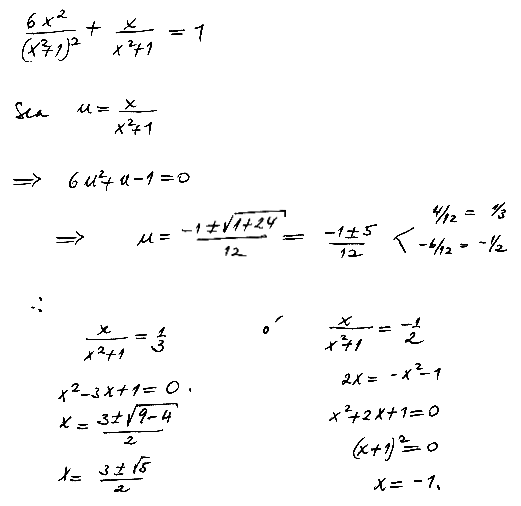 6x²/(x²+1)² + x/(x²+1) = 1
Sea u = x/(x²+1)
⇒ 6u²+u-1=0
⇒ u = (-1±√(1+24))/12 = (-1±5)/12 < 4/12 = 1/3
-6/12 = -1/2
∴
x/(x²+1) = 1/3 ó x/(x²+1) = -1/2
x²-3x+1=0. 2x = -x²-1
x = (3±√(9-4))/2 x²+2x+1=0
x = (3±√5)/2 (x+1)²=0
x = -1.